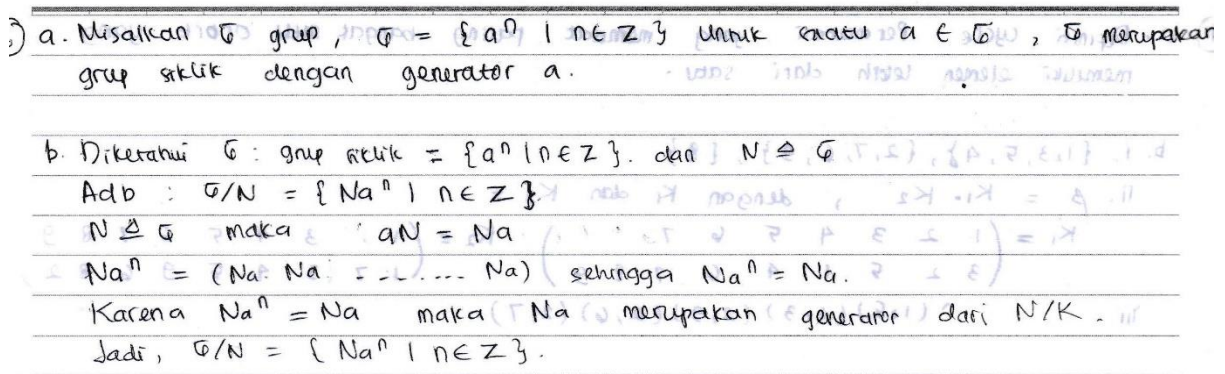 ) a. Misalkan G grup, G = {aⁿ | n ∈ Z} untuk suatu a ∈ G, G merupakan
grup siklik dengan generator a.
b. Diketahui G : grup siklik = {aⁿ | n ∈ Z}. dan N ⊴ G
Adb : G/N = {Naⁿ | n ∈ Z}.
N ⊴ G maka aN = Na
Naⁿ = (Na. Na ........ Na) sehingga Naⁿ = Na.
Karena Naⁿ = Na maka Na merupakan generator dari N/K.
Jadi, G/N = {Naⁿ | n ∈ Z}.